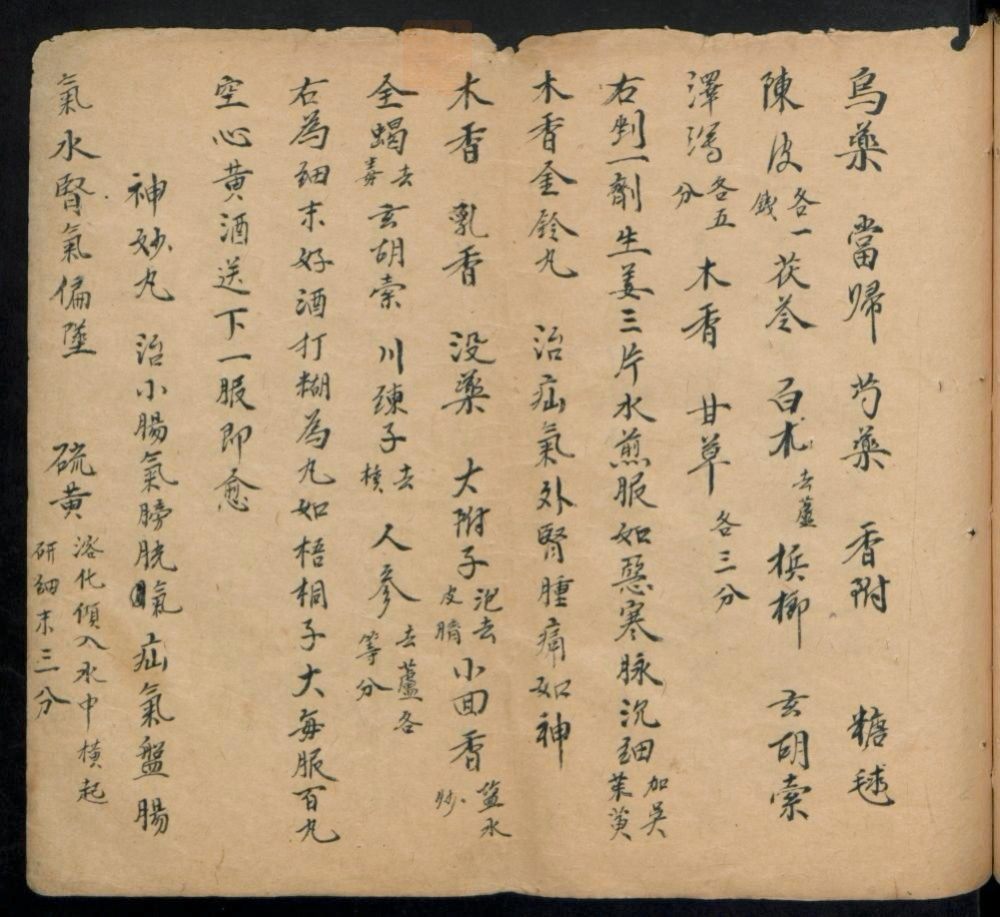 烏藥 當歸 芍藥 香附 糖毬
陳皮各一錢 茯苓 白朮去蘆 檳榔 玄胡索
澤瀉各五分 木香 甘草各三分
右剉一劑生姜三片水煎服如惡寒脉沉細加吳茱萸
木香金鈴丸 治疝氣外腎腫痛如神
木香 乳香 没藥 大附子泡去皮臍 小茴香盐水炒
全蝎去毒 玄胡索 川練子去核 人參去蘆各等分
右為細末好酒打糊為丸如梧桐子大每服百丸
空心黄酒送下一服即愈
神妙丸 治小腸氣膀胱氣疝氣盤腸
氣水腎氣偏墜 硫黄溶化傾入水中撗起研細末三分